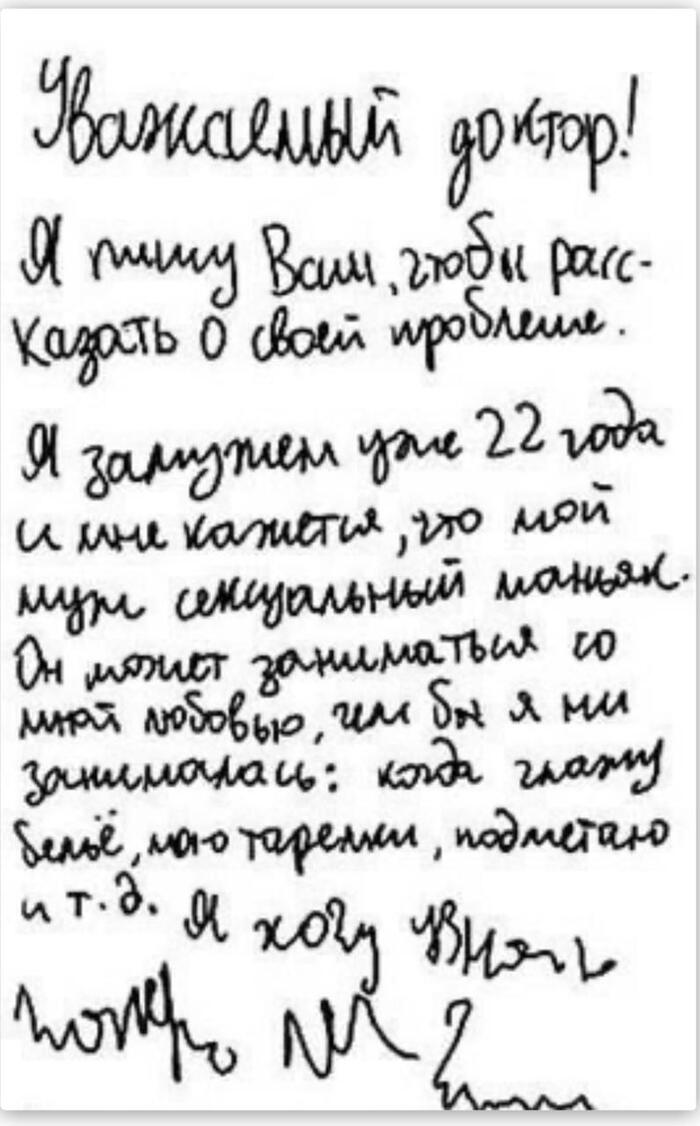 Уважаемый доктор!
Я пишу Вам, чтобы расс-
казать о своей проблеме.
Я замужем уже 22 года
и мне кажется, что мой
муж сексуальный маньяк.
Он может заниматься со
мной любовью, чем бы я ни
занималась: когда глажу
бельё, мою тарелки, подметаю
и т.д. Я хочу